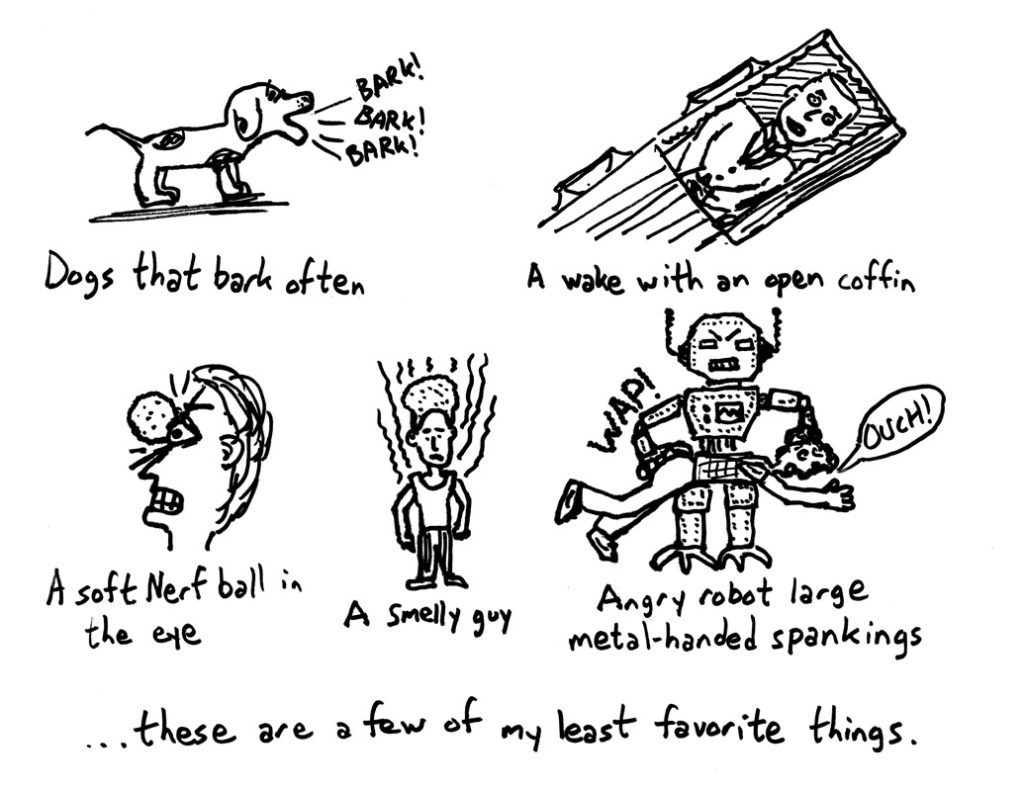 BARK!
BARK!
BARK!
Dogs that bark often
A wake with an open coffin
A soft Nerf ball in
the eye
A smelly guy
WAP!
OUCH!
Angry robot large
metal-handed spankings
...these are a few of my least favorite things.